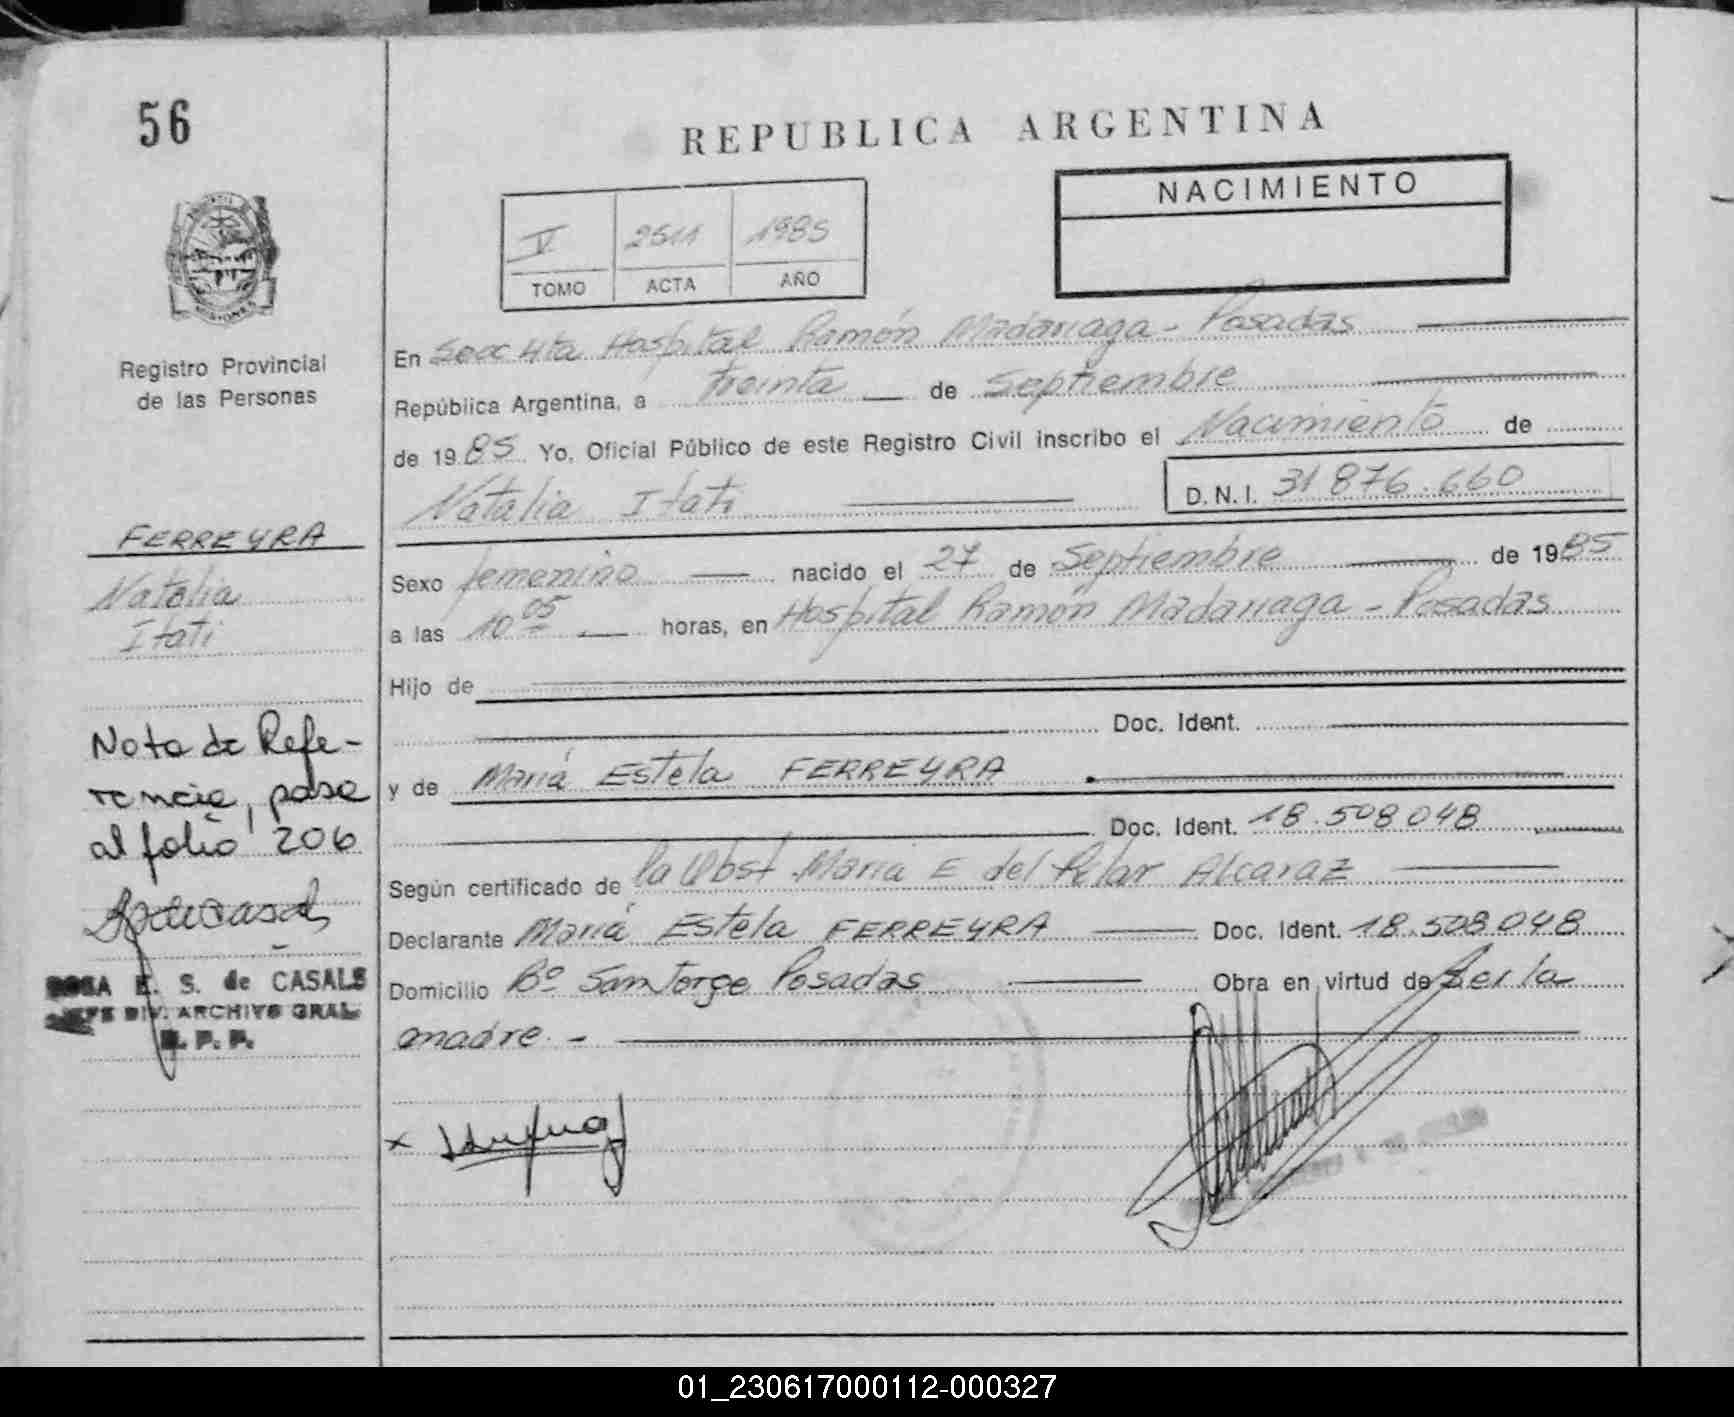 56
REPUBLICA ARGENTINA
NACIMIENTO
V 2511 1985
TOMO ACTA AÑO
MISIONES
Registro Provincial
de las Personas
En Secc 4ta Hospital Ramón Madariaga - Posadas
República Argentina, a treinta de Septiembre
de 1985 Yo, Oficial Público de este Registro Civil inscribo el Nacimiento de
Natalia Itati D.N.I. 31 876.660
FERREYRA
Natalia
Itati
Sexo femenino nacido el 27 de Septiembre de 1985
a las 10 05 horas, en Hospital Ramón Madariaga - Posadas
Hijo de
Doc. Ident.
y de María Estela FERREYRA
Doc. Ident. 18.508.048
Según certificado de la Obst. María E del Pilar Alcaraz
Declarante María Estela FERREYRA Doc. Ident. 18.508.048
Domicilio Bº San Jorge Posadas Obra en virtud de ser la
madre. -
Nota de Refe-
rencia, pasa
al folio 206
ROSA E. S. de CASALS
JEFE DIV. ARCHIVO GRAL.
R. P. P.
x
01_230617000112-000327